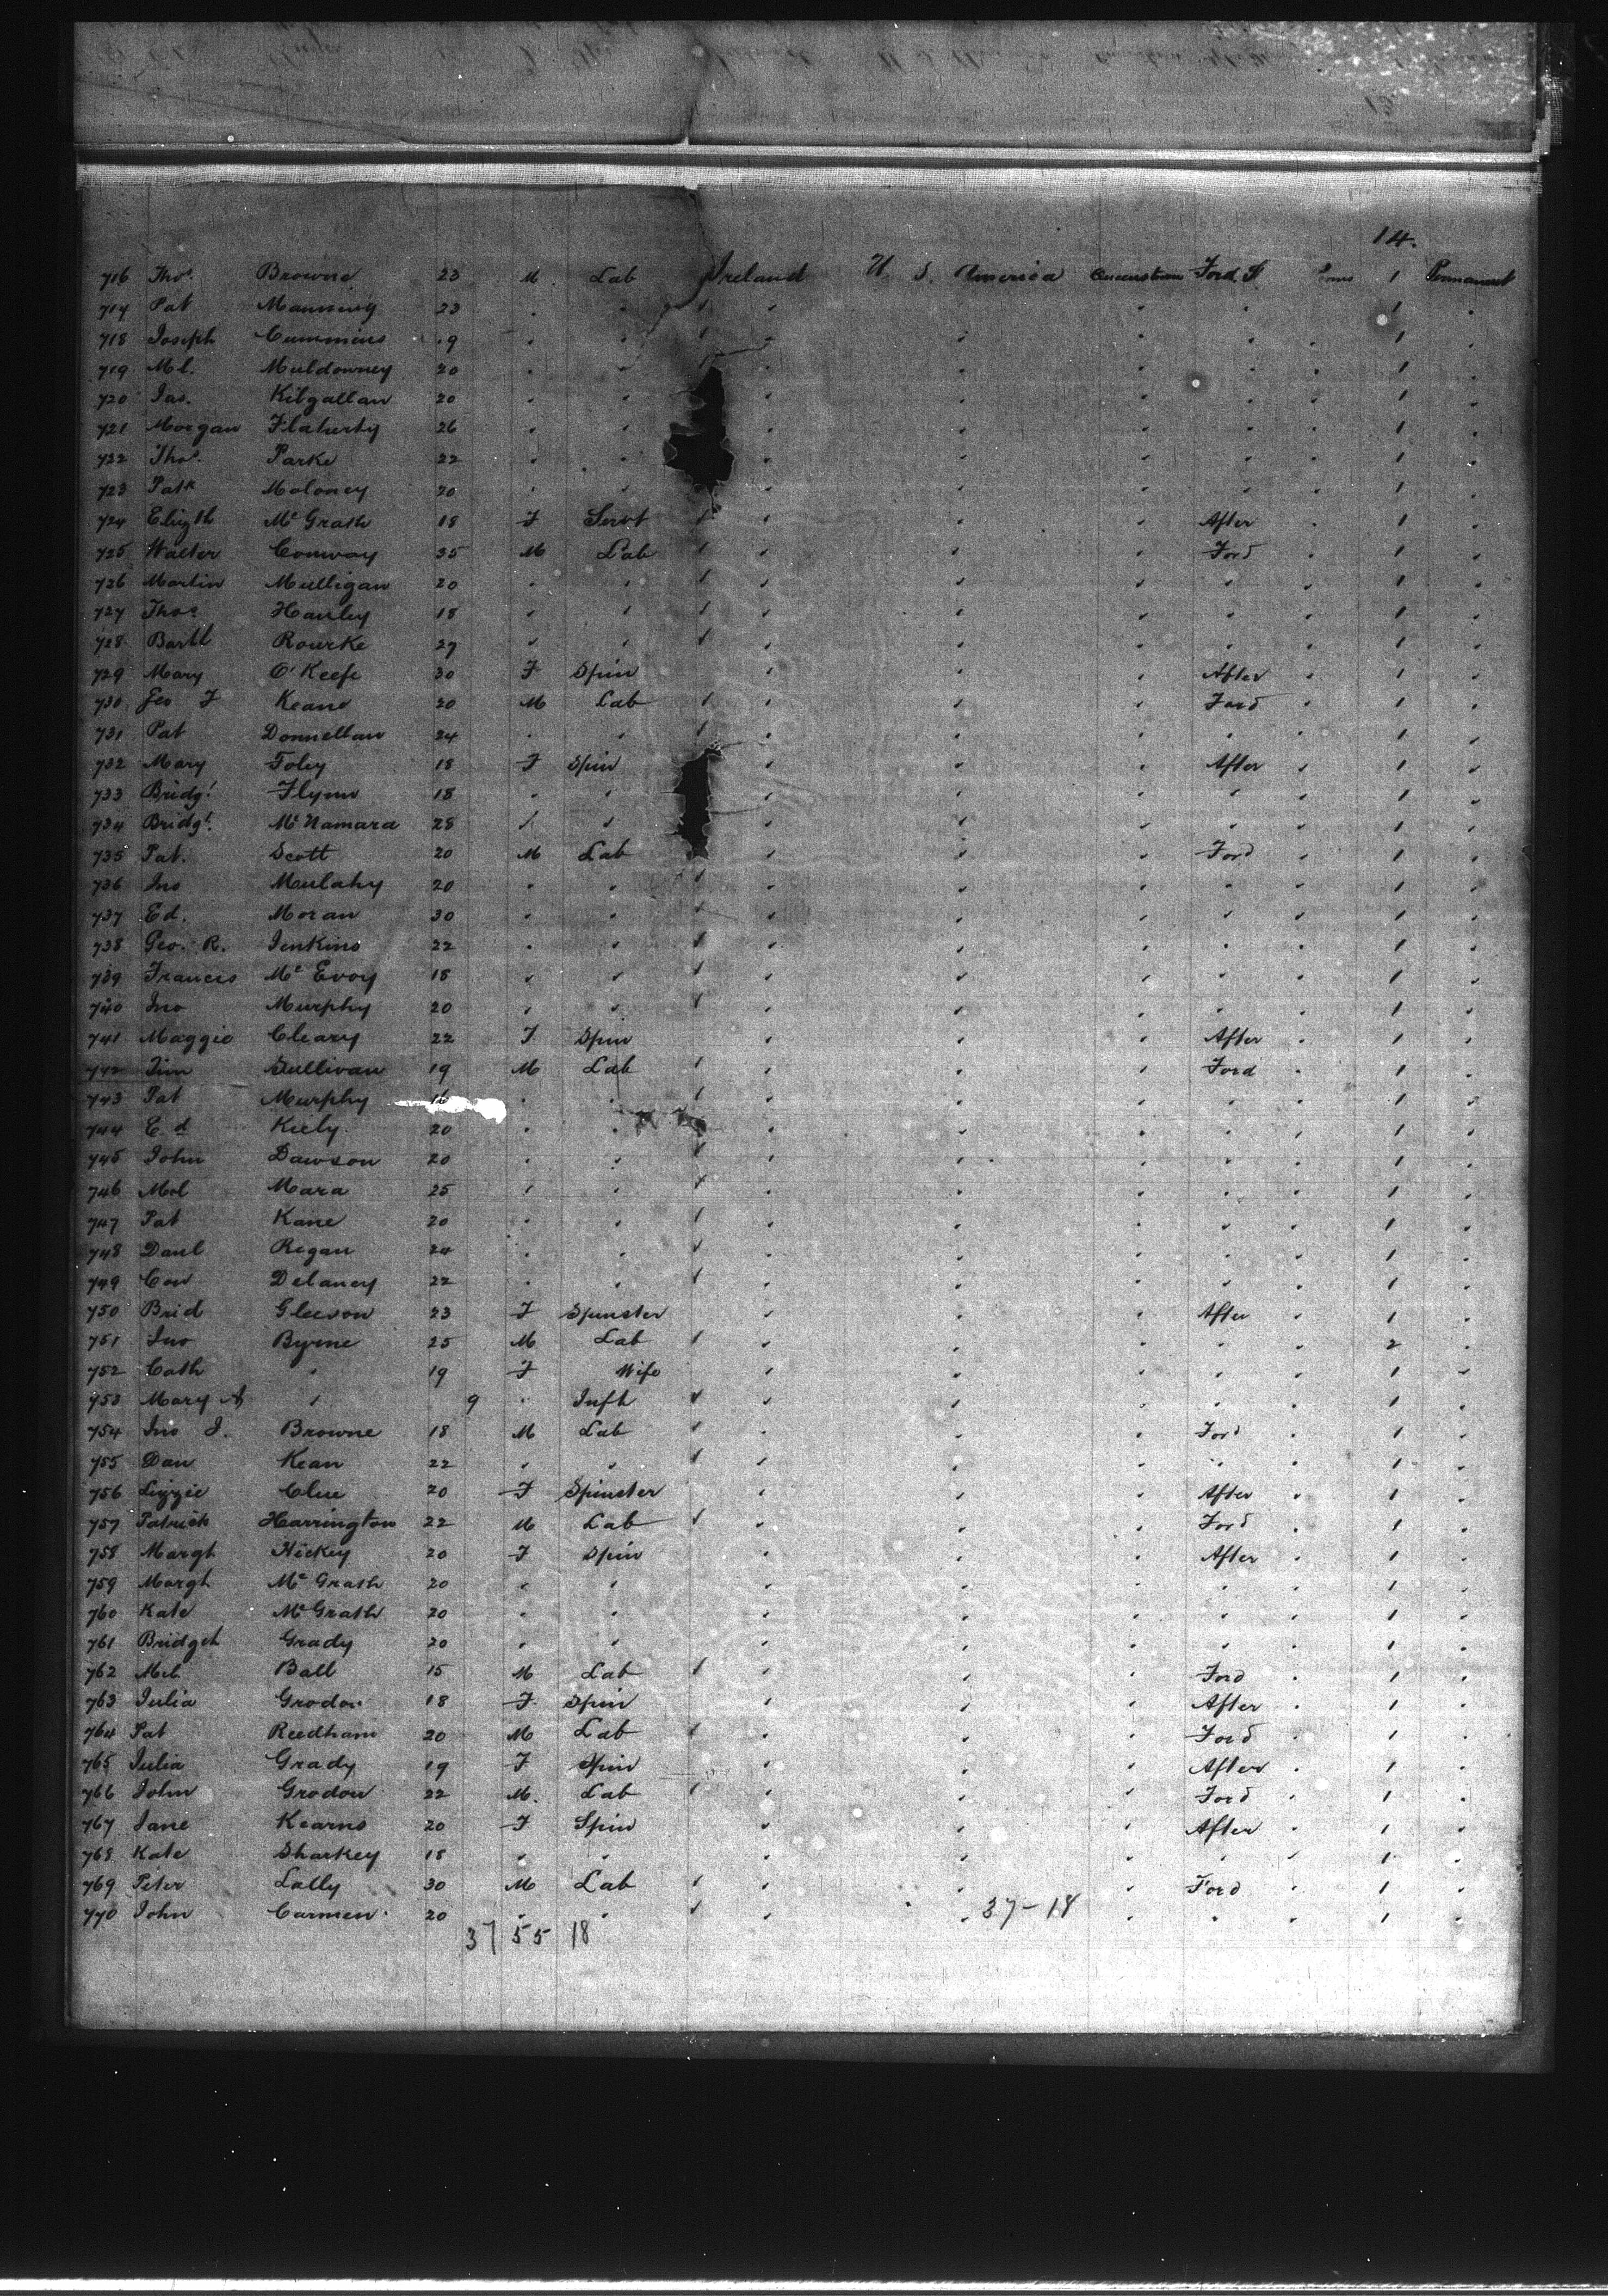 14.
716 Thos. Browne 23 M. Lab Ireland U. S. America Queenstown Ford. St 1 Permanent
717 Pat Manning 23 1
718 Joseph Cummins 19 1
719 Ml. Muldowney 20 1
720 Jas. Kilgallan 20 1
721 Morgan Flaherty 26 1
722 Thos. Parke 22 1
723 Patk Moloney 20 1
724 Elizth McGrath 18 F Servt After 1
725 Walter Conway 35 M Lab Ford 1
726 Martin Mulligan 20 1
727 Thos Hanley 18 1
728 Bartl Rourke 27 1
729 Mary O'Keefe 30 F Spin After 1
730 Geo F Keane 20 M Lab Ford 1
731 Pat Donnellan 24 1
732 Mary Foley 18 F Spin After 1
733 Bridgt Flynn 18 1
734 Bridgt. McNamara 28 1
735 Pat. Scott 20 M Lab Ford 1
736 Jno Mulahy 20 1
737 Ed. Moran 30 1
738 Geo. R. Jenkins 22 1
739 Francis McEvoy 18 1
740 Jno Murphy 20 1
741 Maggie Cleary 22 F Spin After 1
742 Tim Sullivan 19 M Lab Ford 1
743 Pat Murphy 16 1
744 Ed Kiely 20 1
745 John Dawson 20 1
746 Mol Mara 25 1
747 Pat Kane 20 1
748 Danl Regan 24 1
749 Con Delaney 22 1
750 Brid Gleeson 23 F Spinster After 1
751 Jno Byrne 25 M Lab 2
752 Cath " 19 F Wife 1
753 Mary A " 9 Inft 1
754 Jno J. Browne 18 M Lab Ford 1
755 Dan Kean 22 1
756 Lizzie Clue 20 F Spinster After 1
757 Patrick Harrington 22 M Lab Ford 1
758 Margt Hickey 20 F Spin After 1
759 Margt McGrath 20 1
760 Kate McGrath 20 1
761 Bridget Grady 20 1
762 Ml Ball 15 M Lab Ford 1
763 Julia Grodon 18 F. Spin After 1
764 Pat Reedham 20 M Lab Ford 1
765 Julia Grady 19 F Spin After 1
766 John Grodon 22 M. Lab Ford 1
767 Jane Kearns 20 F Spin After 1
768 Kate Sharkey 18 1
769 Peter Lally 30 M Lab Ford 1
770 John Carmen 20 37-18 1
37 55 18